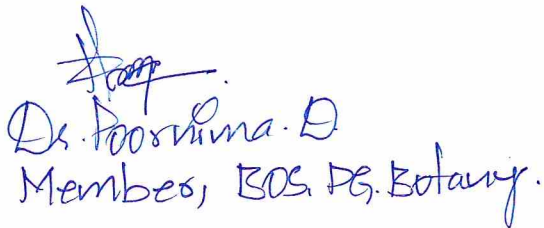 Dr. Poornima. D
Member, BOS. PG. Botany.